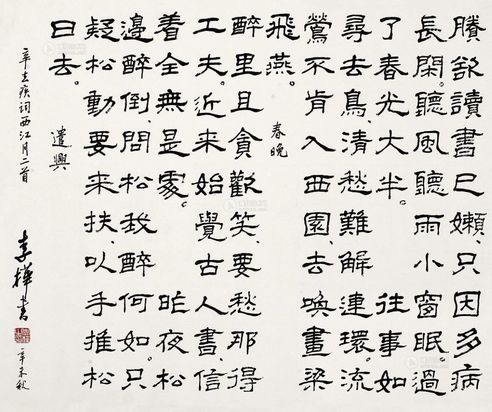 賸欲讀書已嬾、只因多病
長閑。聽風聽雨小窗眠。過
了春光大半。 往事如
尋去鳥、清愁難解連環。流
鶯不肯入西園、去喚畫梁
飛燕。 春晚
醉里且貪歡笑、要愁那得
工夫。近來始覺古人書、信
着全無是處。 昨夜松
邊醉倒、問松我醉何如。只
疑松動要來扶、以手推松
曰去。 遣興
辛弃疾詞西江月二首
李樺書
辛未秋